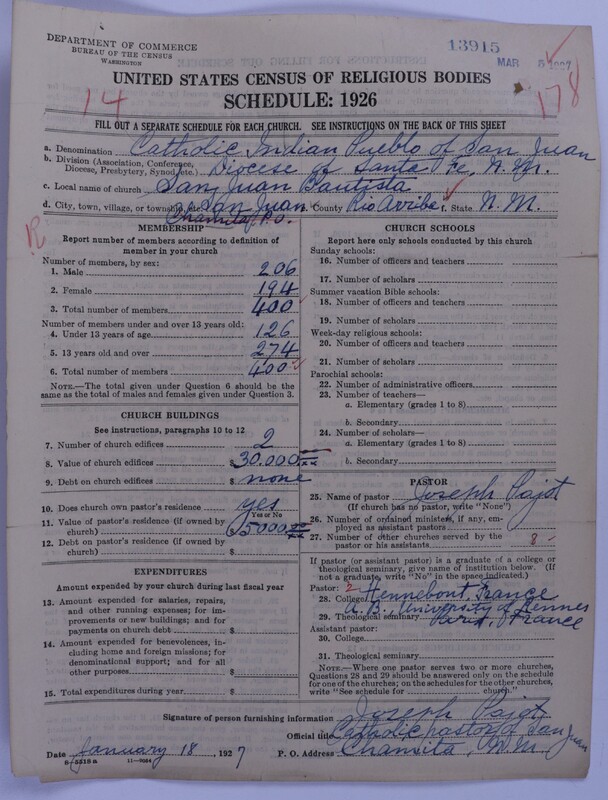 DEPARTMENT OF COMMERCE
BUREAU OF THE CENSUS
WASHINGTON
13915
MAR 5 1927
UNITED STATES CENSUS OF RELIGIOUS BODIES
SCHEDULE: 1926
14
178
FILL OUT A SEPARATE SCHEDULE FOR EACH CHURCH. SEE INSTRUCTIONS ON THE BACK OF THIS SHEET
a. Denomination Catholic Indian Pueblo of San Juan
b. Division (Association, Conference, Diocese, Presbytery, Synod, etc.) Diocese of Santa Fe, N. M.
c. Local name of church San Juan Bautista
d. City, town, village, or township, etc. San Juan e. County Rio Arriba f. State N. M.
Chamita P.O.
R
MEMBERSHIP
Report number of members according to definition of
member in your church
Number of members, by sex:
1. Male 206
2. Female 194
3. Total number of members 400
Number of members under and over 13 years old:
4. Under 13 years of age 126
5. 13 years old and over 274
6. Total number of members 400
NOTE.—The total given under Question 6 should be the
same as the total of males and females given under Question 3.
CHURCH BUILDINGS
See instructions, paragraphs 10 to 12
7. Number of church edifices 2
8. Value of church edifices $ 30.000 xx
9. Debt on church edifices $ none
10. Does church own pastor's residence yes
Yes or No
11. Value of pastor's residence (if owned by
church) $ 5000
12. Debt on pastor's residence (if owned by
church) $
EXPENDITURES
Amount expended by your church during last fiscal year
13. Amount expended for salaries, repairs,
and other running expenses; for im-
provements or new buildings; and for
payments on church debt $
14. Amount expended for benevolences, in-
cluding home and foreign missions; for
denominational support; and for all
other purposes $
15. Total expenditures during year $
CHURCH SCHOOLS
Report here only schools conducted by this church
Sunday schools:
16. Number of officers and teachers
17. Number of scholars
Summer vacation Bible schools:
18. Number of officers and teachers
19. Number of scholars
Week-day religious schools:
20. Number of officers and teachers
21. Number of scholars
Parochial schools:
22. Number of administrative officers
23. Number of teachers—
a. Elementary (grades 1 to 8)
b. Secondary
24. Number of scholars—
a. Elementary (grades 1 to 8)
b. Secondary
PASTOR
25. Name of pastor Joseph Pajot
(If church has no pastor, write "None")
26. Number of ordained ministers, if any, em-
ployed as assistant pastors
27. Number of other churches served by the
pastor or his assistants 8
If pastor (or assistant pastor) is a graduate of a college or
theological seminary, give name of institution below. (If
not a graduate, write "No" in the space indicated.)
Pastor: 2
28. College Hennebont, France
A. B. University of Rennes
29. Theological seminary Paris, France
Assistant pastor:
30. College
31. Theological seminary
NOTE.—Where one pastor serves two or more churches,
Questions 28 and 29 should be answered only on the schedule
for one of the churches; on the schedules for the other churches,
write "See schedule for church."
Signature of person furnishing information Joseph Pajot
Official title Catholic pastor of San Juan
Date January 18, 1927 P. O. Address Chamita, N. M.
8-5518 a 11-9034